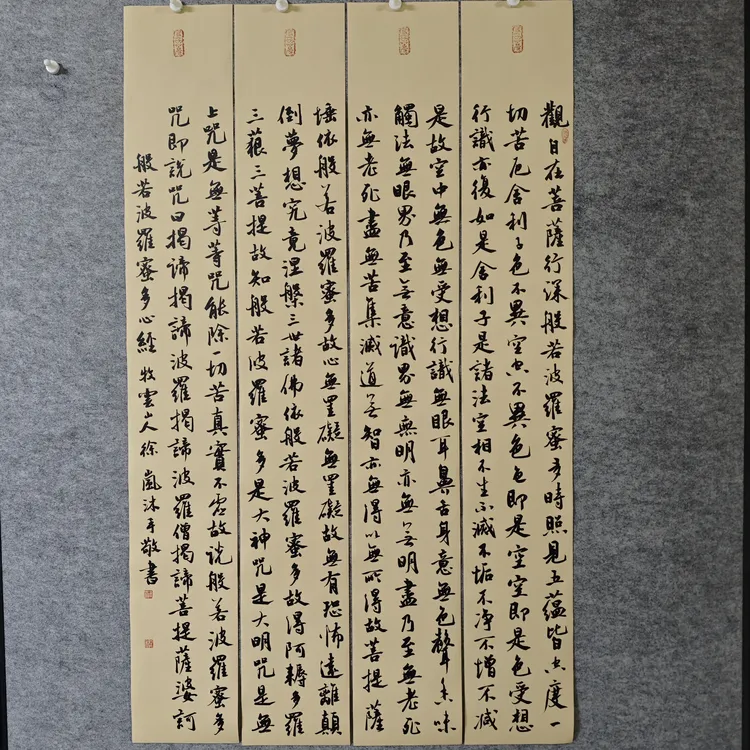 觀自在菩薩行深般若波羅蜜多時照見五蘊皆空度一
切苦厄舍利子色不異空空不異色色即是空空即是色受想
行識亦復如是舍利子是諸法空相不生不滅不垢不净不增不减
是故空中無色無受想行識無眼耳鼻舌身意無色聲香味
觸法無眼界乃至無意識界無無明亦無無明盡乃至無老死
亦無老死盡無苦集滅道無智亦無得以無所得故菩提薩
埵依般若波羅蜜多故心無罣礙無罣礙故無有恐怖遠離顛
倒夢想究竟涅槃三世諸佛依般若波羅蜜多故得阿耨多羅
三藐三菩提故知般若波羅蜜多是大神咒是大明咒是無
上咒是無等等咒能除一切苦真實不虛故說般若波羅蜜多
咒即說咒曰揭諦揭諦波羅揭諦波羅僧揭諦菩提薩婆訶
般若波羅蜜多心經 牧雲山人徐嵐沐手敬書